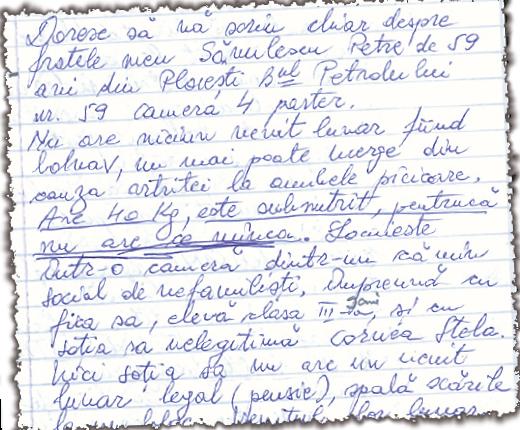 Doresc să vă scriu chiar despre
fratele meu Sănulescu Petre de 59
ani din Ploiești Bul Petrolului
nr. 59 camera 4 parter.
Nu are niciun venit lunar fiind
bolnav, nu mai poate merge din
cauza artritei la ambele picioare.
Are 40 Kg, este subnutrit, pentrucă
nu are ce mînca. Locuiește
într-o cameră dintr-un cămin
social de nefamiliști, împreună cu
fica sa, elevă clasa III-a, și cu
soția sa nelegitimă Cornea Stela.
Nici soția sa nu are un venit
lunar legal (pensie), spală scările
la un bloc. Venitul lor lunar